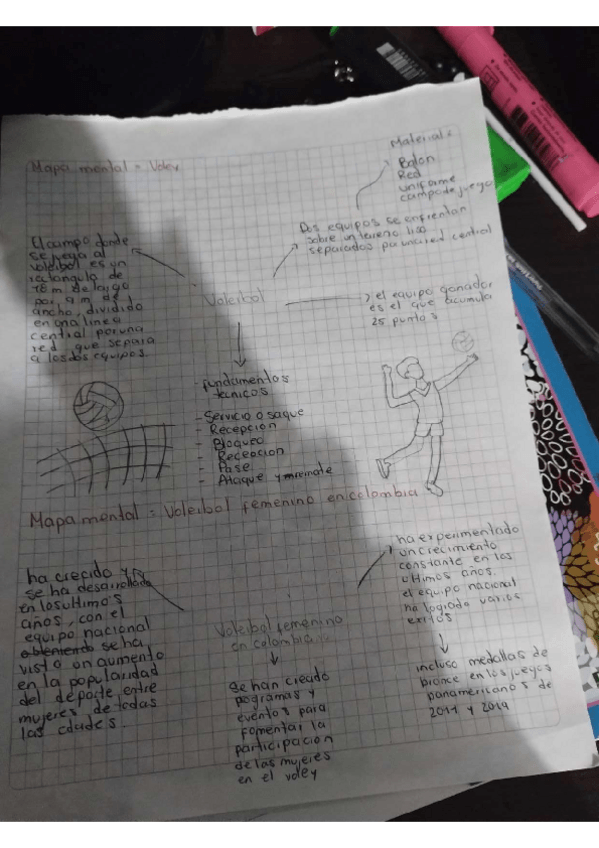 Mapa mental = Voley
Material:
Balon
Red
uniforme
campo de juego
Dos equipos se enfrentan
sobre un terreno liso
separados por una red central
El campo donde
se juega al
voleibol es un
rectangulo de
18 m de largo
por 9 m de
ancho, dividido
en una linea
central por una
red que separa
a los dos equipos.
Voleibol
el equipo ganador
es el que acumula
25 puntos
- fundamentos
tecnicos
- Servicio o saque
- Recepcion
- Bloqueo
- Recepcion
- Pase
- Ataque y remate
Mapa mental = Voleibol femenino en colombia
ha crecido y
se ha desarrollado
en los ultimos
años, con el
equipo nacional
se ha
visto un aumento
en la popularidad
del deporte entre
mujeres de todas
las edades
Voleibol femenino
en colombia
se han creado
pogramas y
eventos para
fomentar la
participacion
de las mujeres
en el voley
ha experimentado
un crecimiento
constante en los
ultimos años.
el equipo nacional
ha logrado varios
exitos
incluso medallas de
bronce en los juegos
panamericanos de
2011 y 2019